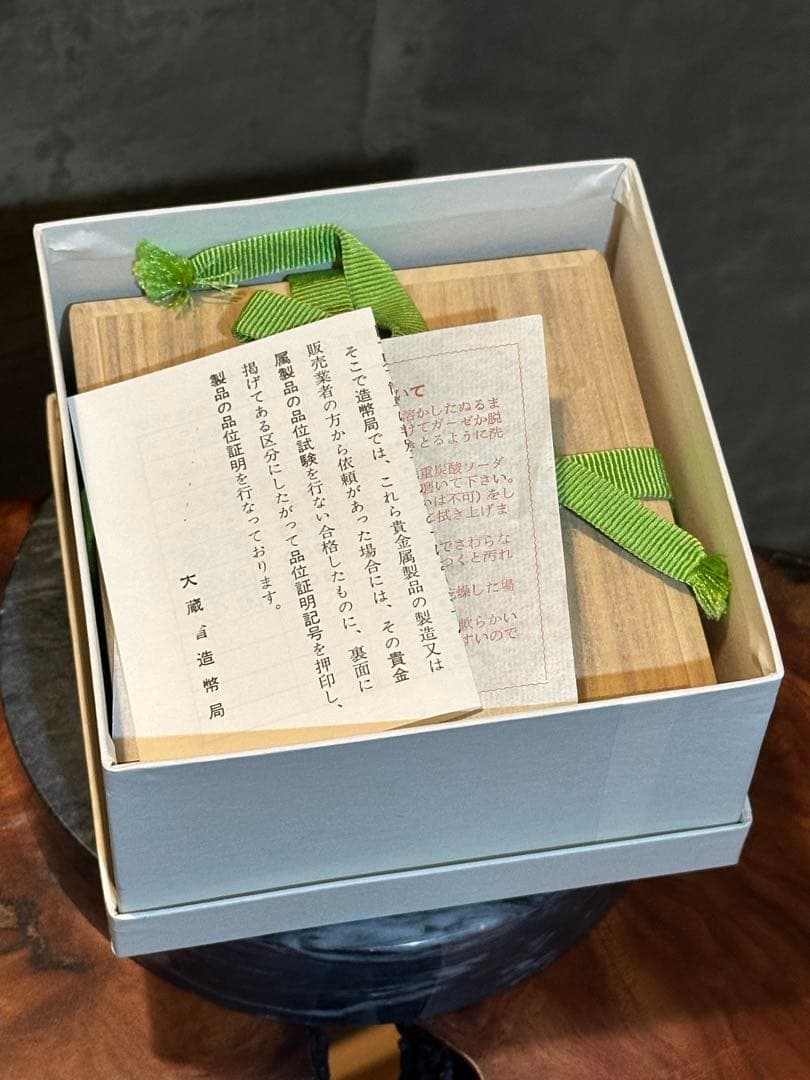 そこで造幣局では、これら貴金属製品の製造又は
販売業者の方から依頼があった場合には、その貴金
属製品の品位試験を行ない合格したものに、裏面に
掲げてある区分にしたがって品位証明記号を押印し、
製品の品位証明を行なっております。
大蔵省造幣局
いて
溶かしたぬるま
けてガーゼか脱
きとるように洗
重炭酸ソーダ
磨いて下さい。
いは不可)をし
拭き上げま
でさわらな
つくと汚れ
燥した場
軟らかい
すいので